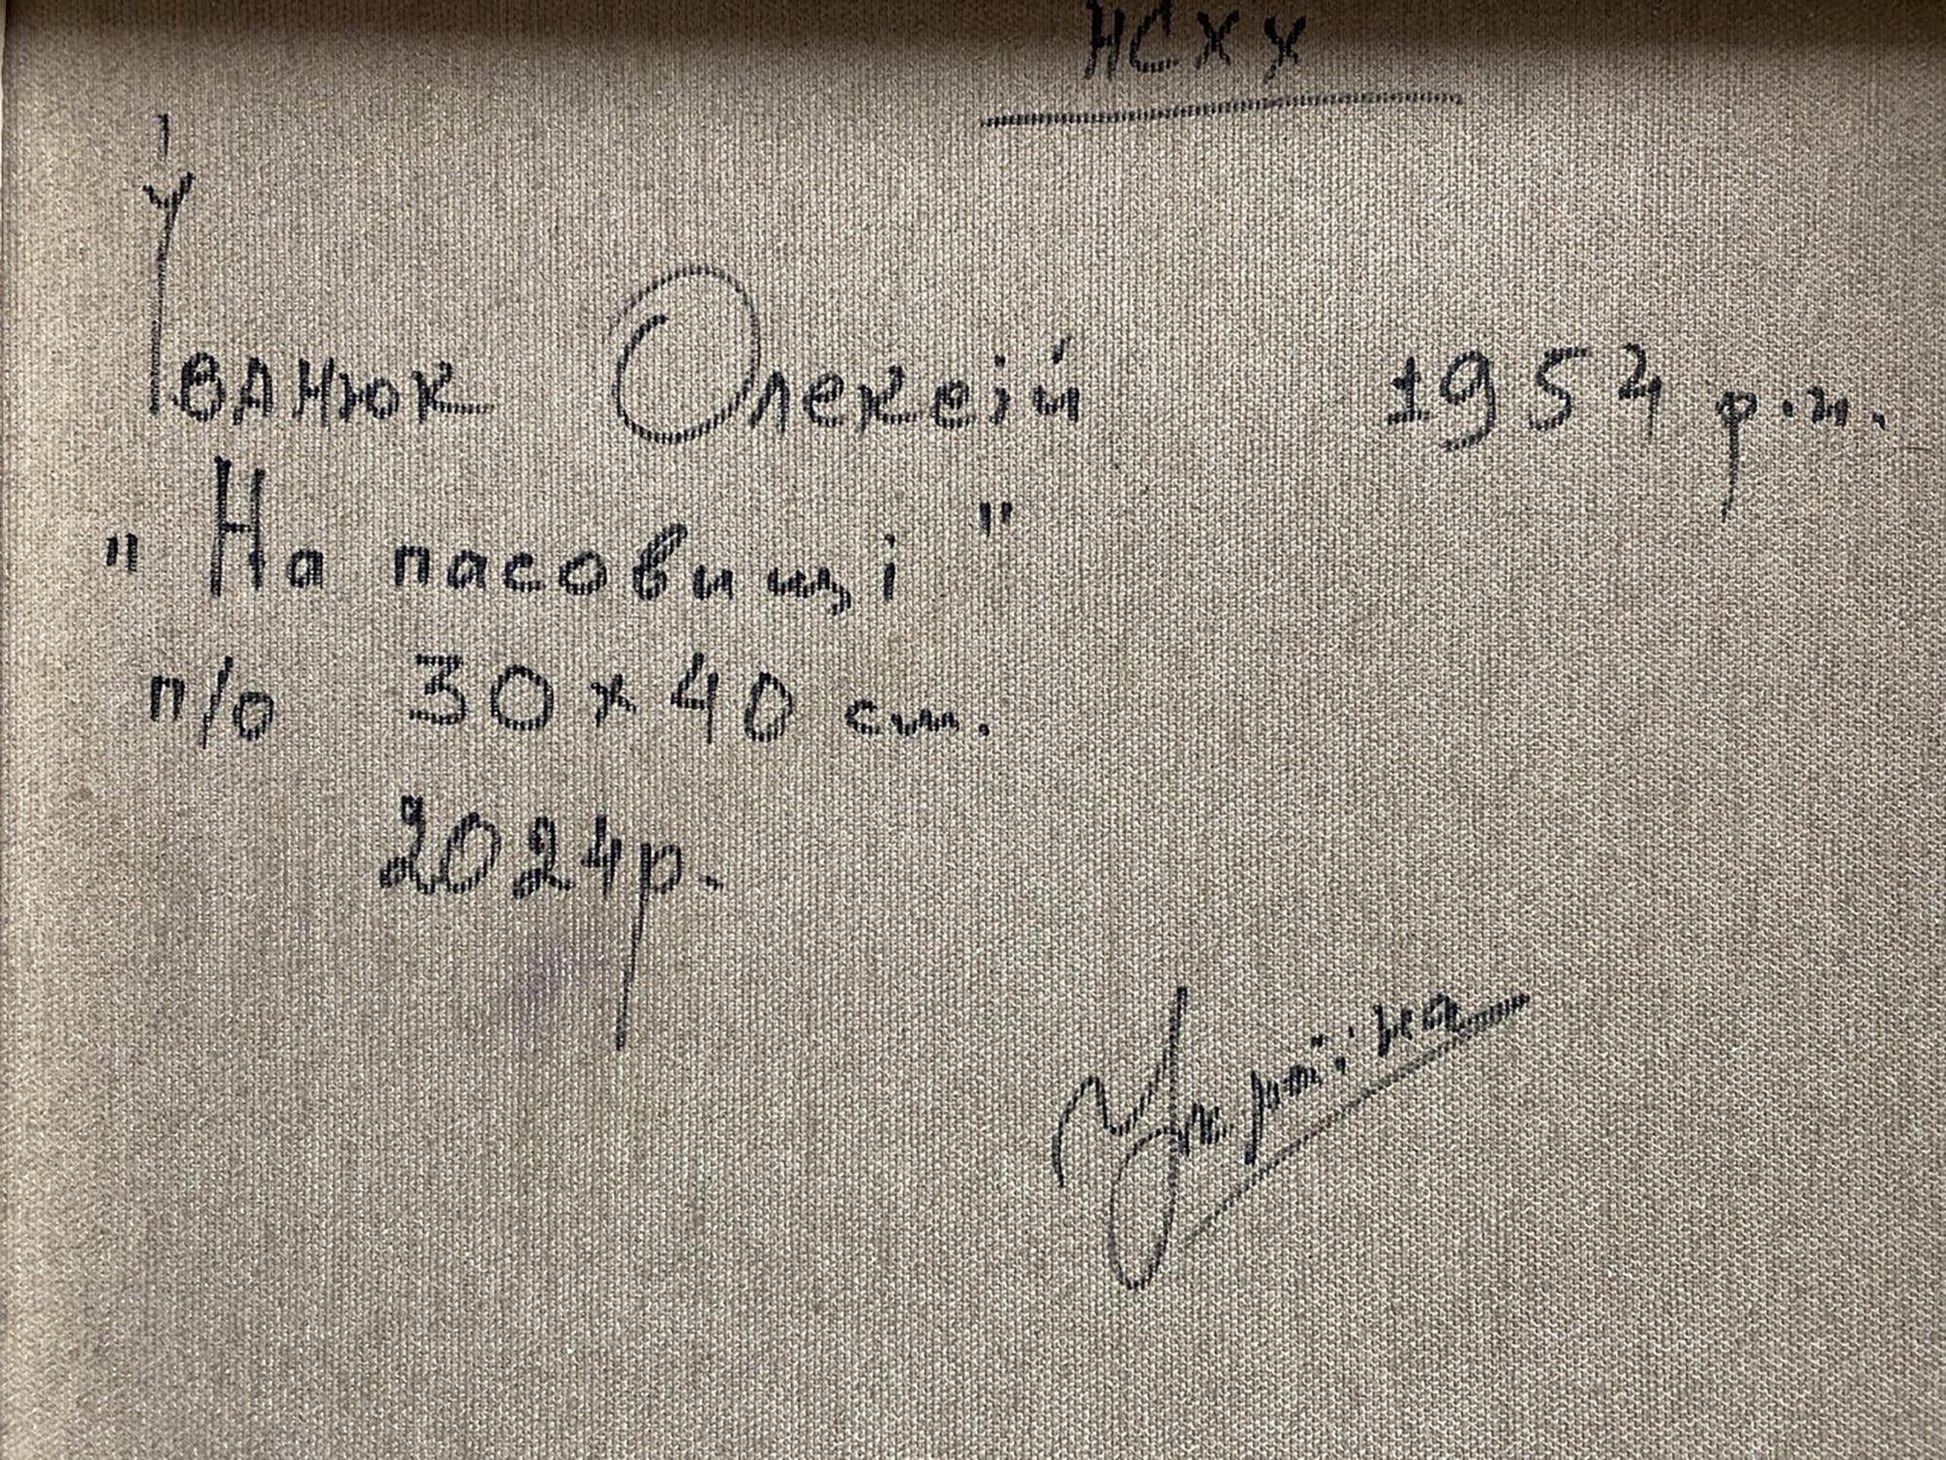 НСХУ
Іванюк Олексій 1954 р.н.
"На пасовищі"
п/о 30×40 см.
2024р.
Україна